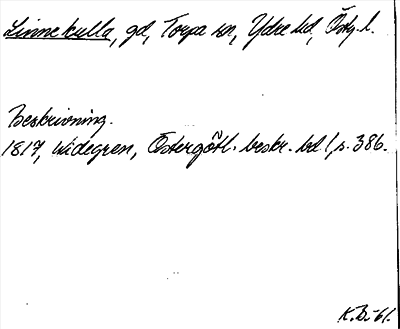 Linnekulla, gd, Torpa sn, Ydre hd, Östg. l.
Beskrivning.
1817, Widegren, Östergötl. beskr. bd 1, s. 386.
K.B.-61.